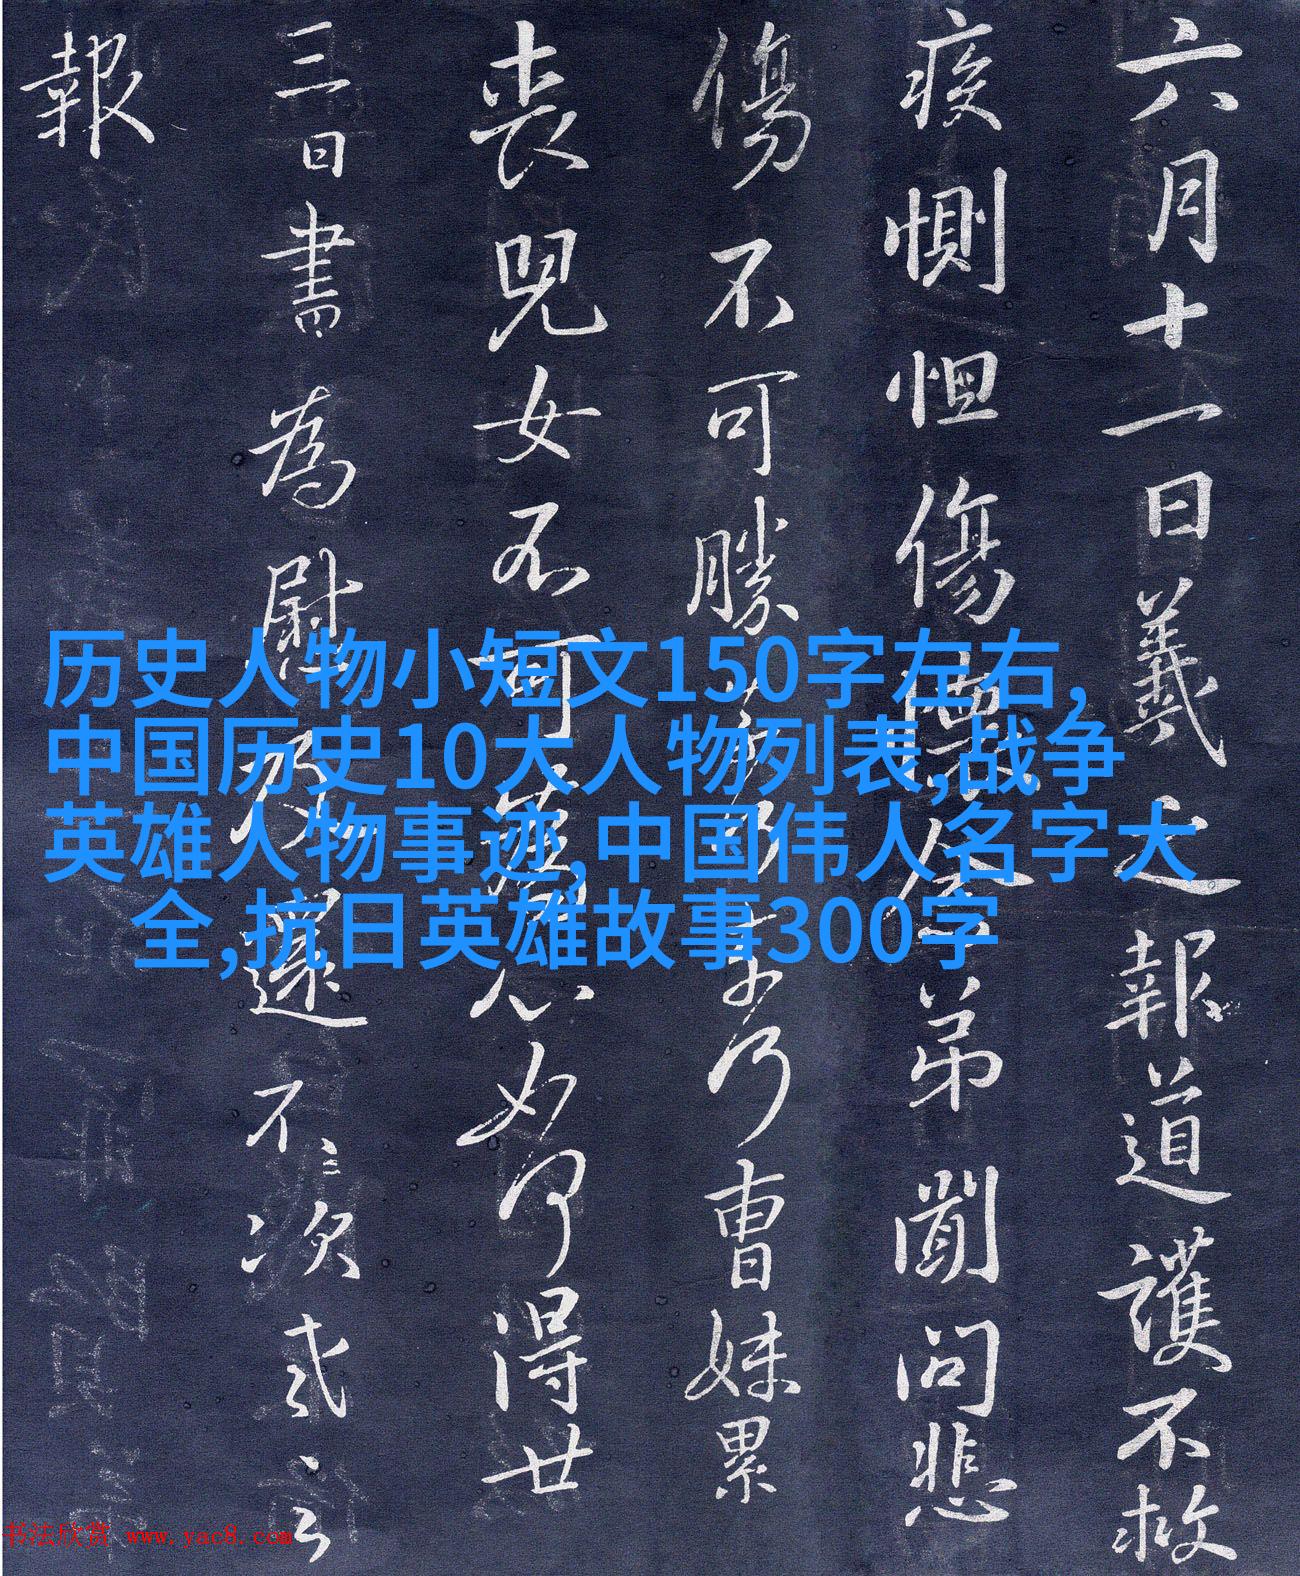 六月十一日羲之報道護不救
疾惻怛傷弟聞問悲
傷不可勝乃曹妹累
喪兒女不可心如何得廿
三日書為慰還不次
報
历史人物小短文150字左右,
中国历史10大人物列表,战争
英雄人物事迹,中国伟人名字大
全,抗日英雄故事300字
书法欣赏 www.yac8.com